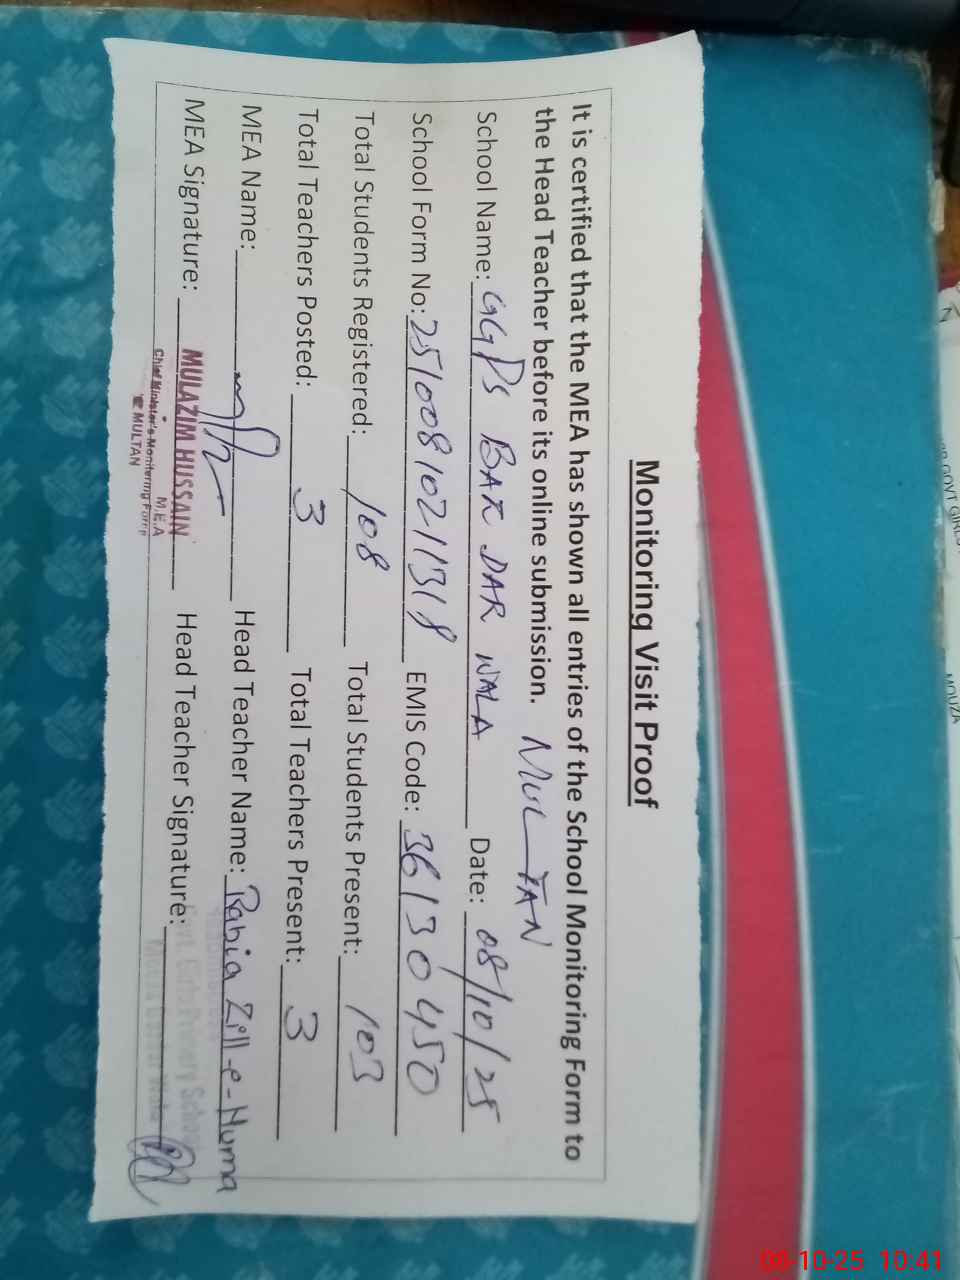 Monitoring Visit Proof
It is certified that the MEA has shown all entries of the School Monitoring Form to
the Head Teacher before its online submission. MULTAN
School Name: GGPS BAR DAR WALA Date: 08/10/25
School Form No: 25100810211318 EMIS Code: 36130450
Total Students Registered: 108 Total Students Present: 103
Total Teachers Posted: 3 Total Teachers Present: 3
MEA Name: Head Teacher Name: Rabia Zill-e-Huma
MEA Signature: MULAZIM HUSSAIN Head Teacher Signature:
M.E.A
Chief Minister's Monitoring Force
MULTAN
Govt. Girls Primary School
GOVT GIRLS
MOUZA
08-10-25 10:41